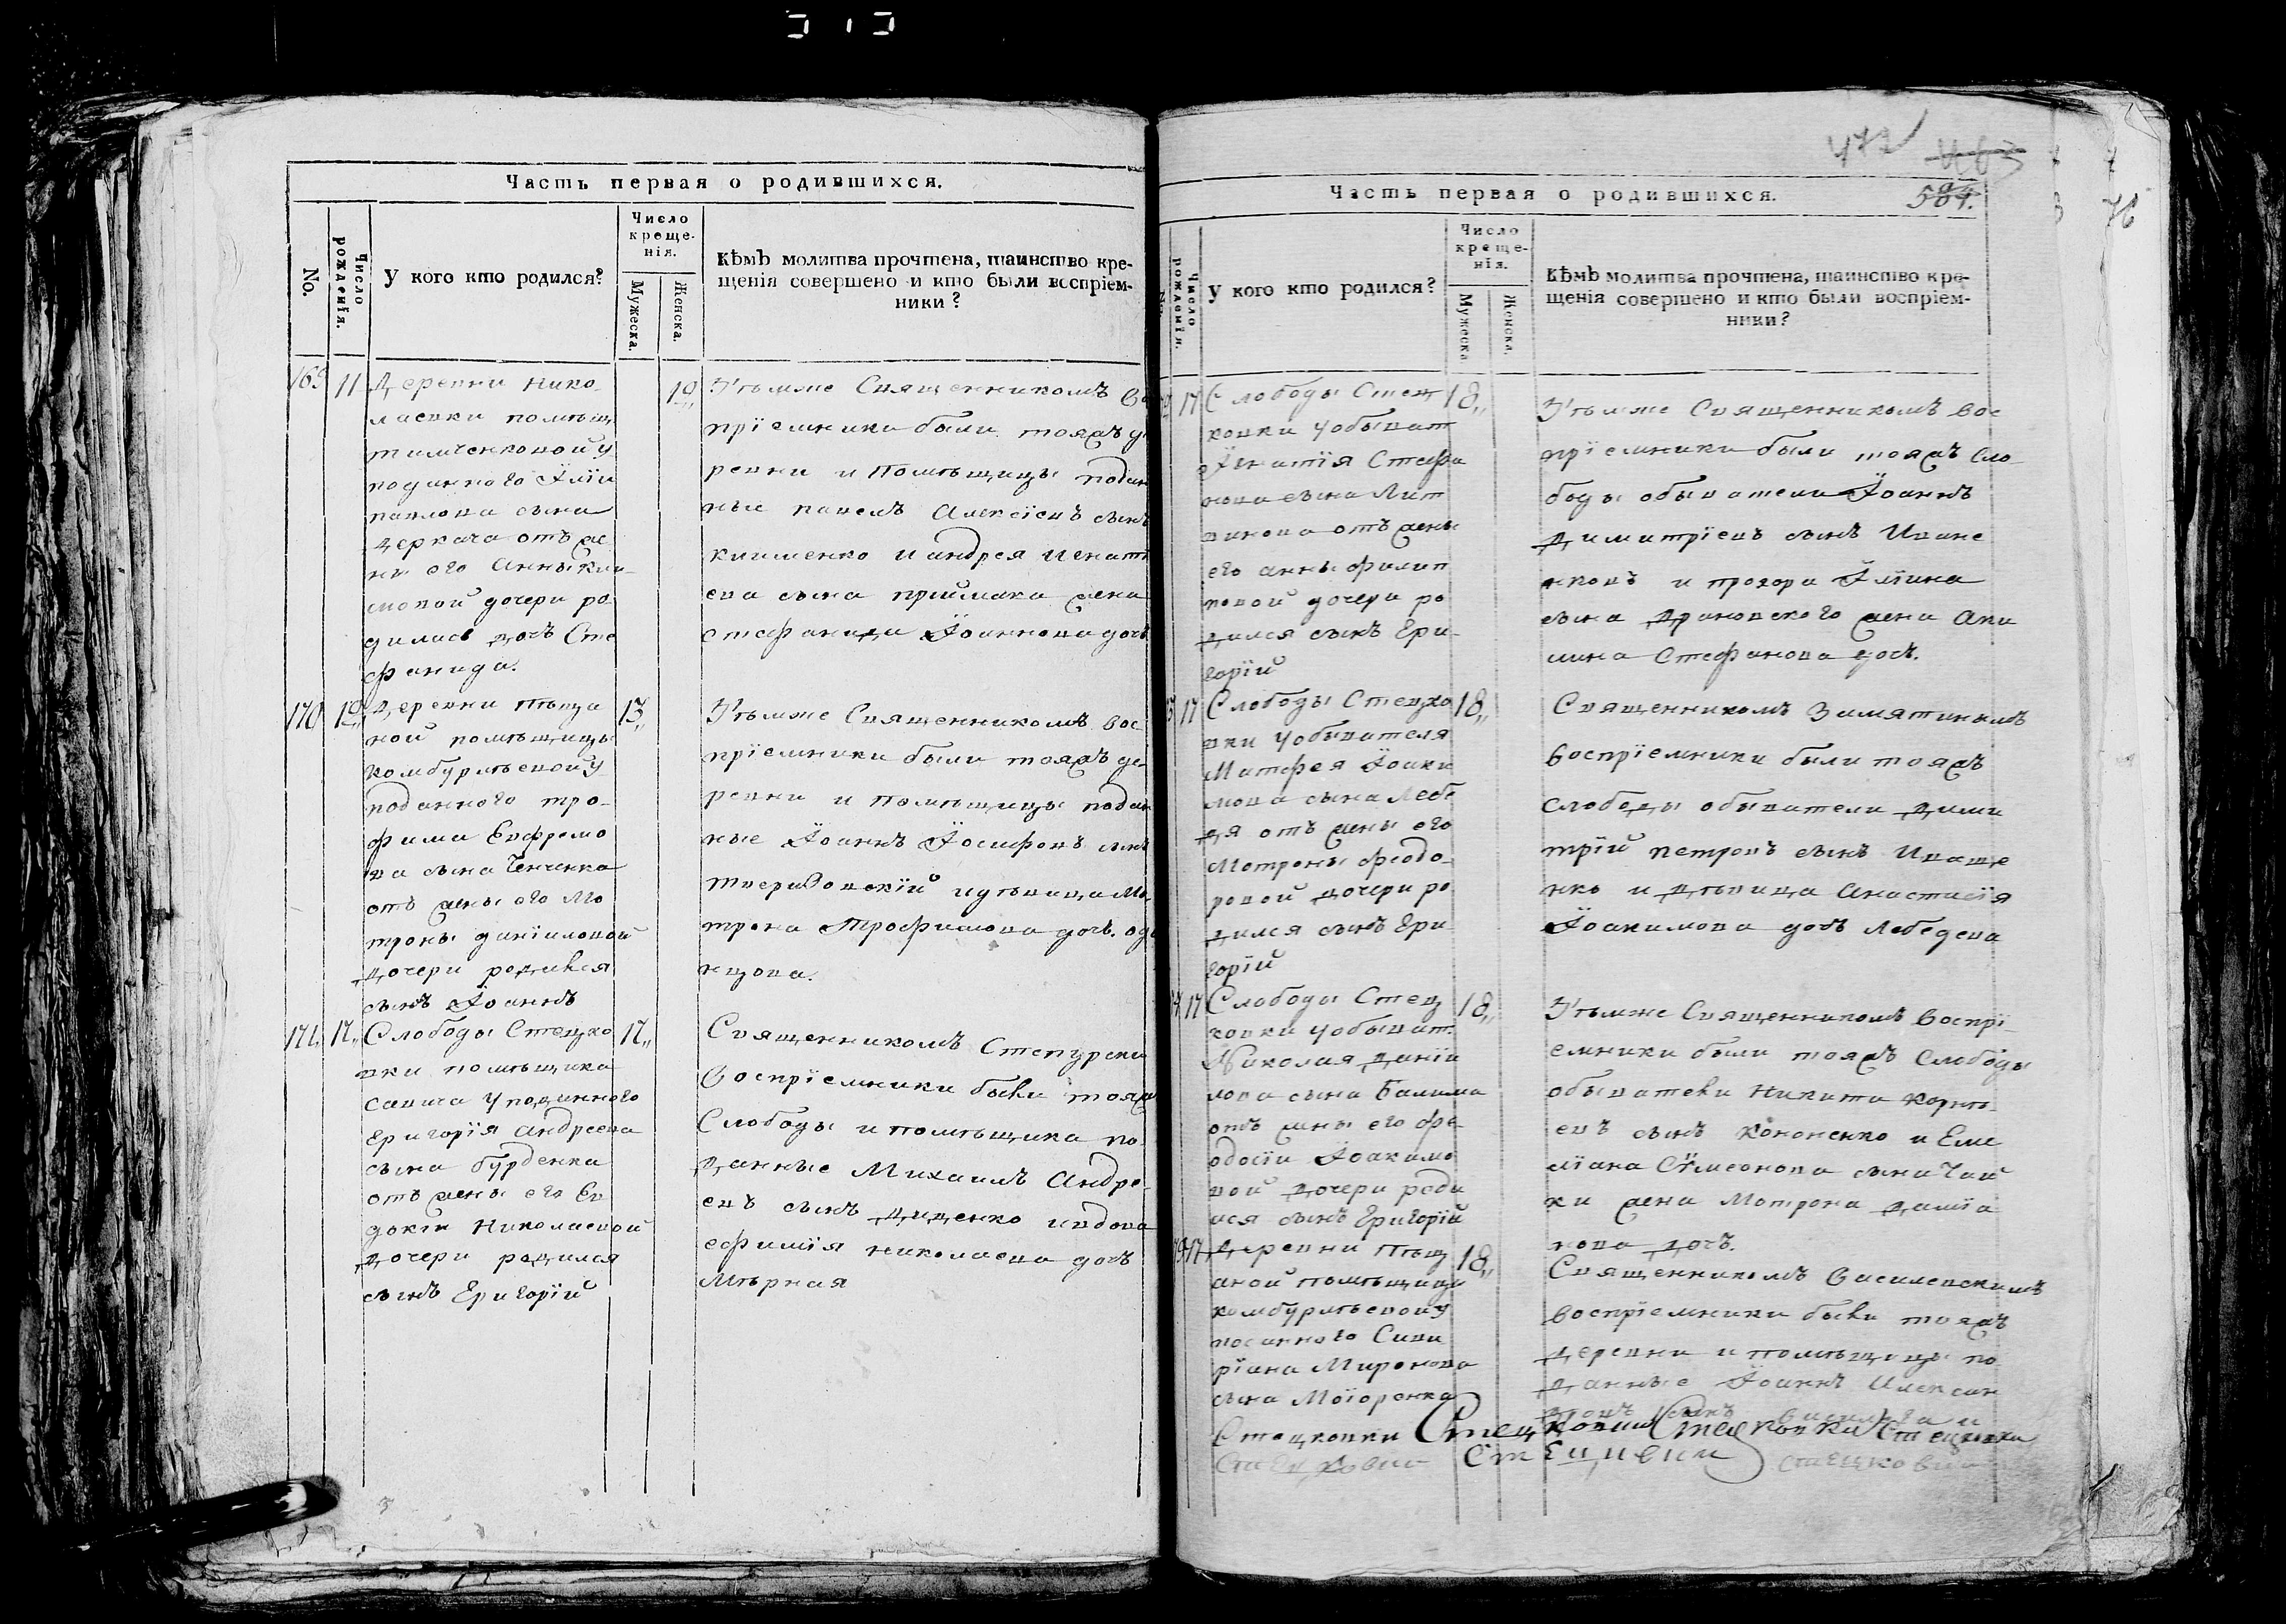 Часть первая о родившихся.
No.
Число рожденїя.
У кого кто родился?
Число
креще-
нїя.
Мужеска.
Женска.
Кѣмъ молитва прочтена, таинство кре-
щенїя совершено и кто были воспрїем-
ники?
169 11 Деревни Нико
лаевки помѣщ
тимченковой у
подан­ного Илїи
павлова сына
Деркача отъ же
ны его Анны Кли
мовой дочери ро
дилась дочь Сте
фанида.
12
Тѣмже Священникомъ во
прїемники были тояжъ де
ревни и Помѣщицы подан
ные павелъ Алексїевъ сынъ
клименко и андрея игнатї
ева сына приймака жена
стефанида Їоаннова дочь
170 12 Деревни Пѣща
ной помѣщицы
Комбурлѣевой у
поданного тро-
фима Евфремо
ва сына Ченчика
отъ жены его Мо
троны данїиловой
дочери родился
сынъ Їоаннъ
13
Тѣмже Священникомъ вос
прїемники были тояжъ де
ревни и помѣщицы подан
ные Їоаннъ Їосифовъ сынъ
и дѣвица Мо
трона Трофимова дочь
171 17 Слободы Стецко
вки помѣщика
савича у поданного
Григорїя Андреева
сына бурденка
отъ жены его Ев
докїи Николаевой
дочери родился
сынъ Григорїй
17
Священникомъ
Воспрїемники были тояжъ
Слободы и помѣщика по
данные Михаилъ Андре-
евъ сынъ Диденко и вдова
ефимїя николаева дочь
Мѣрная
Часть первая о родившихся.
472
584.
76
Число рожденїя.
У кого кто родился?
Число
креще-
нїя.
Мужеска
Женска.
Кѣмъ молитва прочтена, таинство кре-
щенїя совершено и кто были воспрїем-
ники?
17 Слободы Стец
ковки у обыват
Игнатїя Стефа
нова сына Лит
винова отъ жены
его анны филип
повой дочери ро
дился сынъ Гри-
горїй
18
Тѣмже Священникомъ вос
прїемники были тояжъ Сло
боды обыватели Їоаннъ
Димитрїевъ сынъ Иване
нковъ и прохора Илїина
сына Драновского жена Аки
лина Стефанова дочь.
17 Слободы Стецко
вки у обывателя
Матфея Їоаки
мова сына Лебе
дя отъ жены его
Мотроны феодо-
ровой дочери ро
дился сынъ Гри
горїй
18
Священникомъ Замятинымъ
воспрїемники были тояжъ
слободы обыватели Дими
трїй петровъ сынъ Иваще
нко и дѣвица Анастасїя
Їоакимова дочь Лебедева
17 Слободы Стец
ковки у обыват.
Николая Данїи
лова сына Балима
отъ жены его фе-
одосїи Їоакимо
вой дочери роди
лся сынъ Григорїй
18
Тѣмже Священникомъ воспрї-
емники были тояжъ Слободы
обыватели Никита Корнѣ-
евъ сынъ Кононенко и Еме
лїана Сѵмеонова сына Чай
ки жена Мотрона Дамїа
нова дочь.
17 Деревни Пѣщ
аной помѣщицы
комбурлѣевой у
поданного Сави
рїана Миронова
сына
18
Священникомъ Василевскимъ
воспрїемники были тояжъ
деревни и помѣщицы по
данные Їоаннъ Алексан
дровъ сынъ
Стецковки Стецковки Стецковки Стецковки
Стецковки Стецовки стецковки